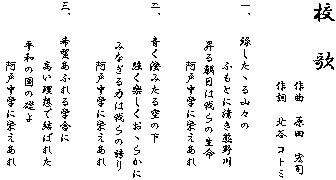 校歌
作曲 原田 宏司
作詞 北谷 コトミ
一、緑したゝる山々の
ふもとに清き熊野川
昇る朝日は我らの生命
阿戸中学に栄えあれ
二、青く澄みたる空の下
強く楽しくおゝらかに
みなぎる力は我らの誇り
阿戸中学に栄えあれ
三、希望あふれる学舎に
高い理想で結ばれた
平和の国の礎よ
阿戸中学に栄えあれ